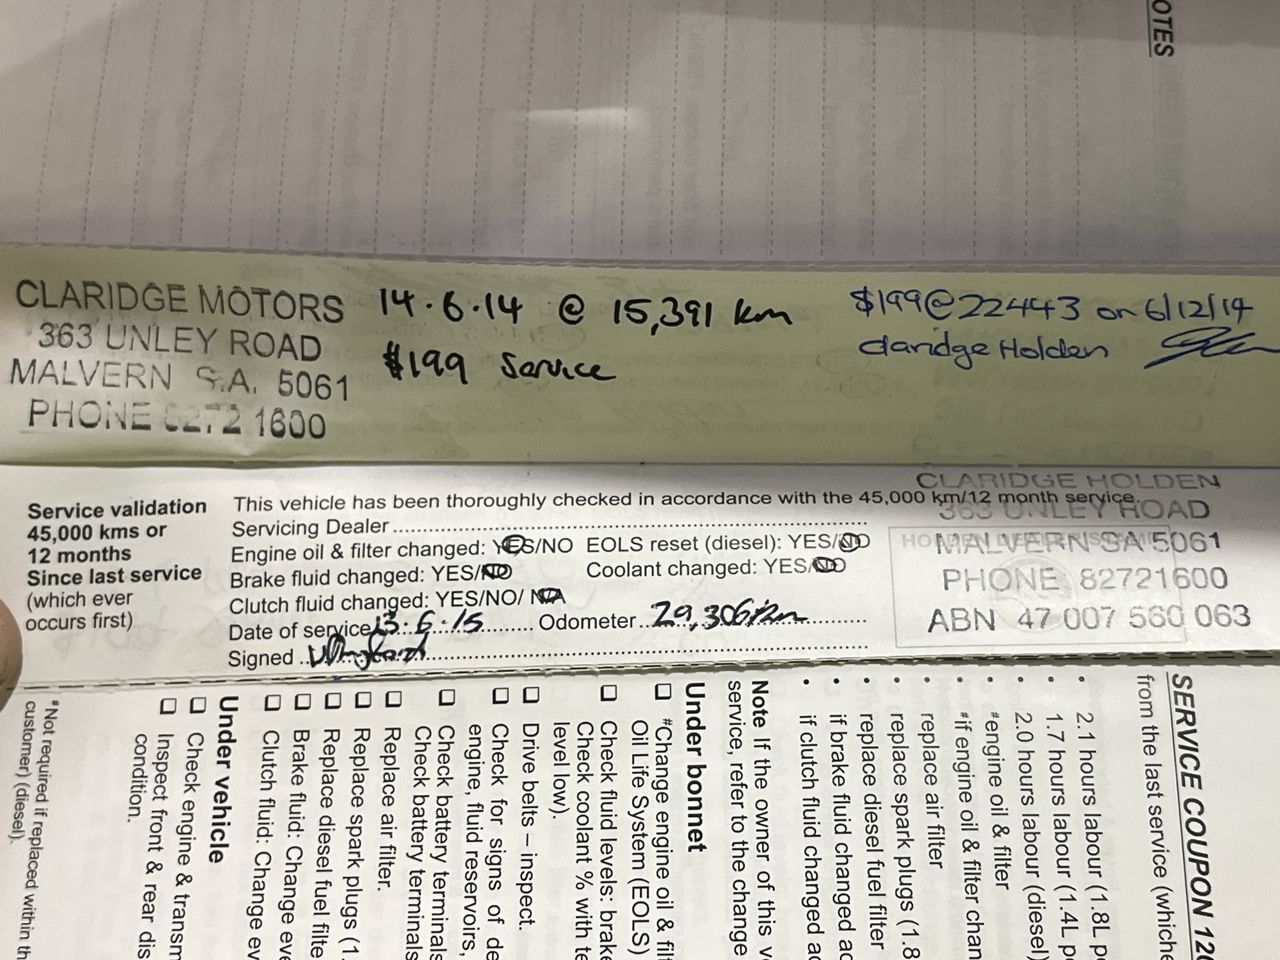 OTES
CLARIDGE MOTORS
363 UNLEY ROAD
MALVERN S.A. 5061
PHONE 8272 1600
14.6.14 @ 15,391 km
$199 Service
$199@22443 on 6/12/14
Claridge Holden
Service validation
45,000 kms or
12 months
Since last service
(which ever
occurs first)
This vehicle has been thoroughly checked in accordance with the 45,000 km/12 month service.
Servicing Dealer
Engine oil & filter changed: YES/NO EOLS reset (diesel): YES/NO
Brake fluid changed: YES/NO Coolant changed: YES/NO
Clutch fluid changed: YES/NO/ N/A
Date of service 13.6.15 Odometer 29,306km
Signed
CLARIDGE HOLDEN
363 UNLEY ROAD
MALVERN SA 5061
PHONE 82721600
ABN 47 007 560 063
SERVICE COUPON 120
from the last service (whiche
• 2.1 hours labour (1.8L p
• 1.7 hours labour (1.4L p
• 2.0 hours labour (diesel)
• #engine oil & filter
• #if engine oil & filter chan
• replace air filter
• replace spark plugs (1.8
• replace diesel fuel filter
• if brake fluid changed ac
• if clutch fluid changed ac
Note If the owner of this v
service, refer to the change
Under bonnet
☐ #Change engine oil & filt
Oil Life System (EOLS)
☐ Check fluid levels: brake
Check coolant % with te
level low).
☐ Drive belts – inspect.
☐ Check for signs of de
engine, fluid reservoirs,
☐ Check battery terminals
Check battery terminals
☐ Replace air filter.
☐ Replace spark plugs (1.
☐ Replace diesel fuel filte
☐ Brake fluid: Change eve
☐ Clutch fluid: Change ev
Under vehicle
☐ Check engine & transm
☐ Inspect front & rear dis
condition.
*Not required if replaced within th
customer) (diesel).